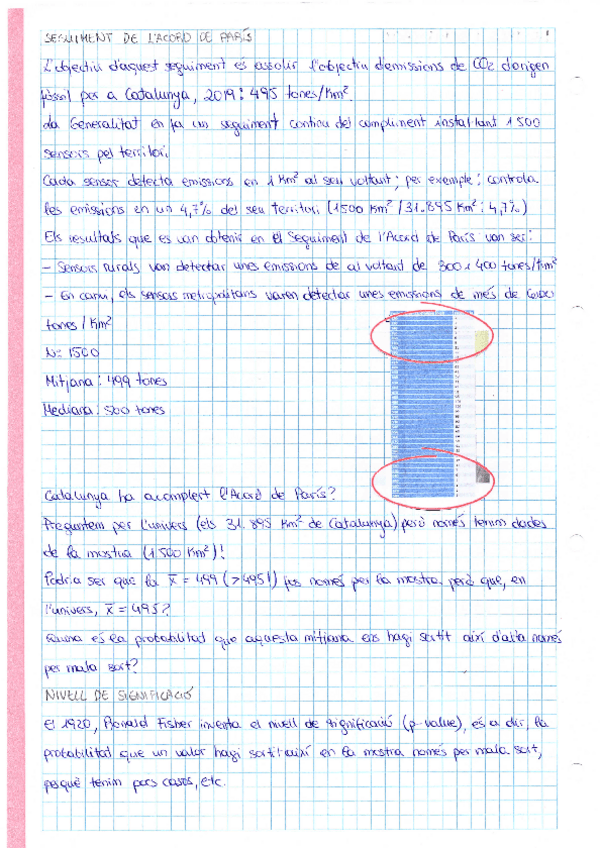 SEGUIMENT DE L'ACORD DE PARÍS
L'objectiu d'aquest seguiment és assolir l'objectiu d'emissions de CO2 d'origen
fòssil per a Catalunya, 2019: 495 tones/Km².
La Generalitat en fa un seguiment continu del compliment instal·lant 1500
sensors pel territori.
Cada sensor detecta emissions en 1 Km² al seu voltant; per exemple: controla
les emissions en un 4,7% del seu territori (1500 Km² / 31.895 Km²: 4,7%)
Els resultats que es van obtenir en el Seguiment de l'Acord de París van ser:
- Sensors rurals van detectar unes emissions de al voltant de 300 i 400 tones/Km²
- En canvi, els sensors metropolitans varen detectar unes emissions de més de
tones / Km²
N= 1500
Mitjana: 499 tones
Mediana: 500 tones
Catalunya ha acomplert l'Acord de París?
Preguntem per l'univers (els 31.895 Km² de Catalunya) però només tenim dades
de la mostra (1500 Km²)!
Podria ser que la x̄ = 499 (>495!) fos només per la mostra però que, en
l'univers, x̄ = 495?
Quina és la probabilitat que aquesta mitjana ens hagi sortit així d'alta només
per mala sort?
NIVELL DE SIGNIFICACIÓ
El 1920, Ronald Fisher inventa el nivell de significació (p-value), és a dir, la
probabilitat que un valor hagi sortit així en la mostra només per mala sort,
perquè tenim pocs casos, etc.